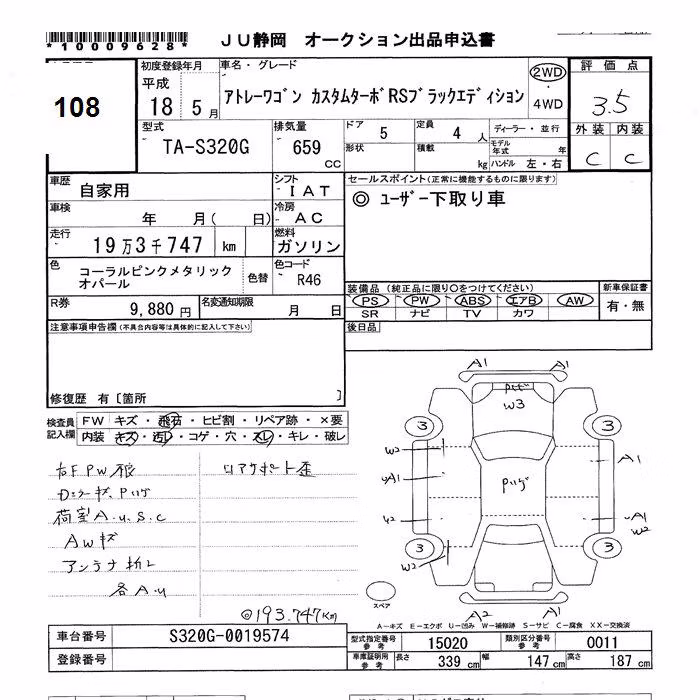 *10009628*
JU静岡 オークション出品申込書
108
初度登録年月
平成
18 5 月
車名・グレード
アトレーワゴン カスタムターボRSブラックエディション
2WD
・
4WD
評価点
3.5
外装 内装
C C
型式
TA-S320G
排気量
659
CC
ドア 5
定員 4 人
ディーラー・並行
形状
積載 kg
モデル年式 年
ハンドル 左・右
車歴
自家用
シフト
IAT
車検 年 月( 日)
冷房
AC
走行
19万3千747 km
燃料
ガソリン
色
コーラルピンクメタリック
オパール
色替
色コード
R46
R券 9,880 円
名変通知期限 月 日
セールスポイント(正常に機能するものに限ります)
◎ ユーザー下取り車
装備品(純正品に限り○をつけてください)
新車保証書
PS PW ABS エアB AW
SR ナビ TV カワ
有・無
後日品
注意事項申告欄(不具合内容等は具体的に記入して下さい)
修復歴 有〔箇所 〕
検査員
記入欄
FW キズ・飛石・ヒビ割・リペア跡・×要
内装 キズ・汚レ・コゲ・穴・スレ・キレ・破レ
右F PW
リアサポート歪
荷室A.U.S.C
AWキズ
アンテナ折レ
各A.U
◎193.747km
A1 A1
W3
3 3
W2
A1
A1
W2
A1
W2
3 3
W2
A2 A1
スペア
A−キズ E−エクボ U−凹み W−補修跡 S−サビ C−腐食 XX−交換済
車台番号 S320G-0019574
登録番号
型式指定番号
参考
15020
類別区分番号
参考
0011
車庫証明用
参考
長さ 339 cm
幅 147 cm
高さ 187 cm